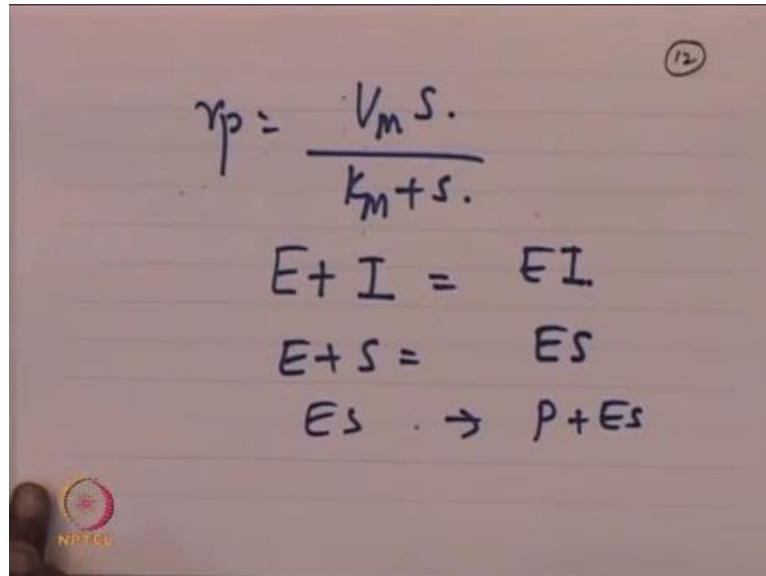 12
rp = Vm S.
Km + S.
E + I = EI.
E + S = ES
ES . → P + ES
NPTEL